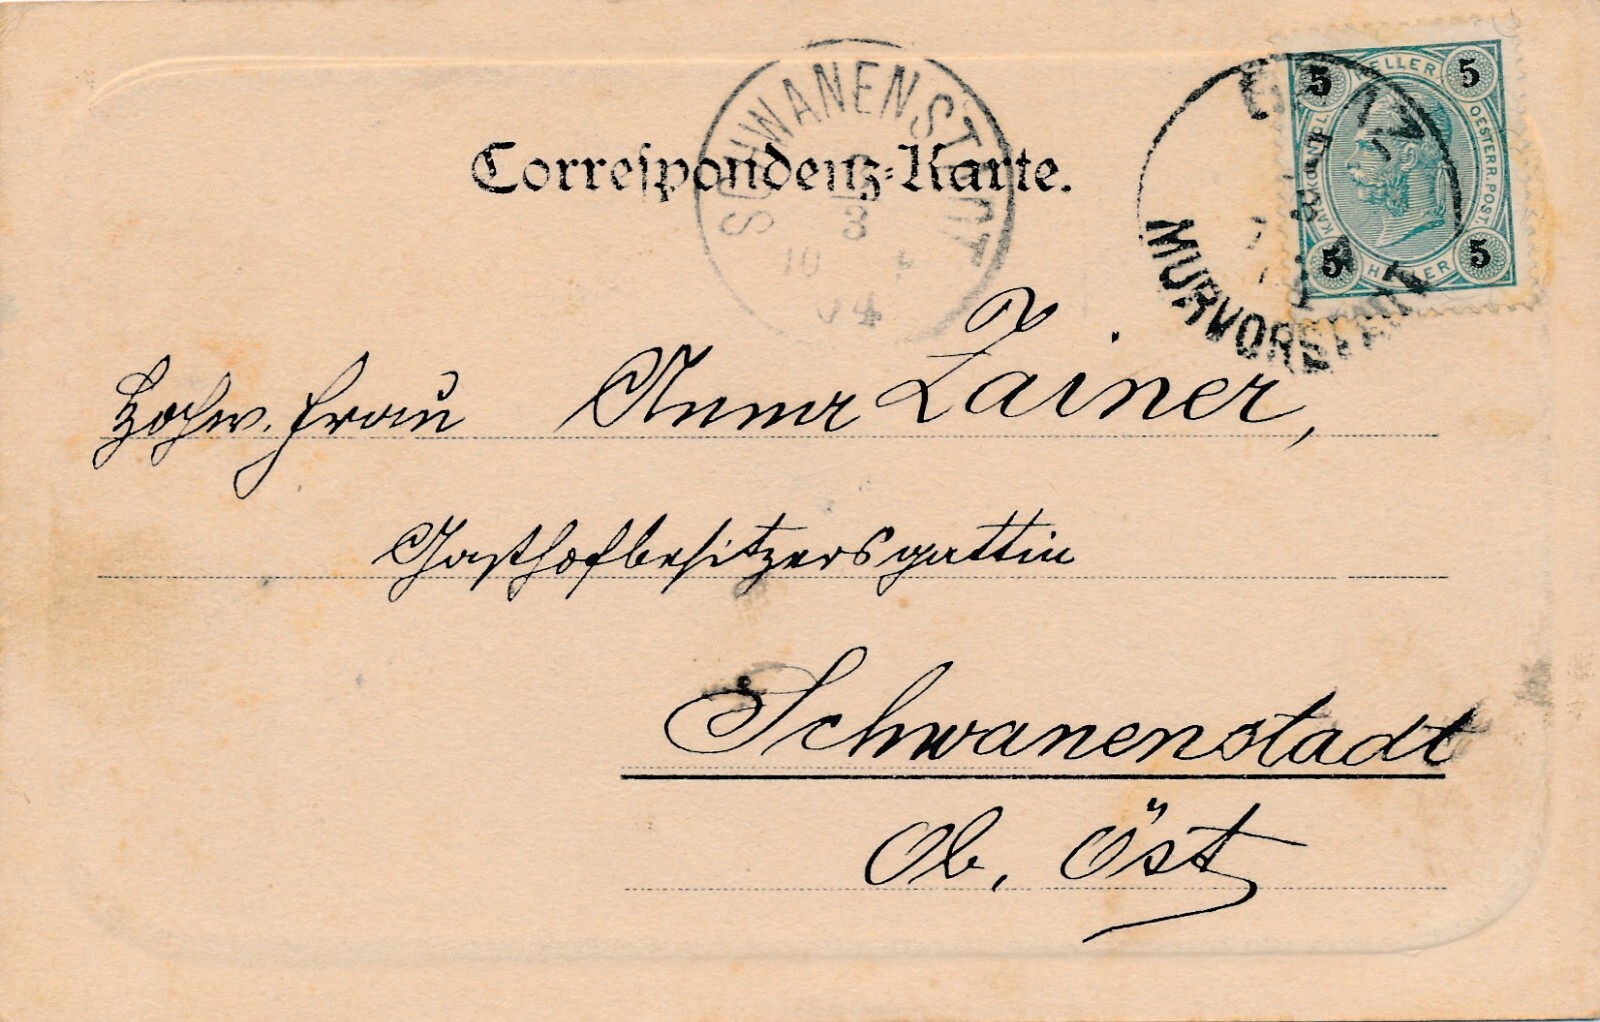 SCHWANENSTADT
3
10
04
GRAZ
MURVORSTADT
5 HELLER 5
OESTERR. POST.
5 HELLER 5
Correspondenz-Karte.
Hochw. Frau Anna Zainer,
Gasthofbesitzersgattin
Schwanenstadt
Ob. Öst